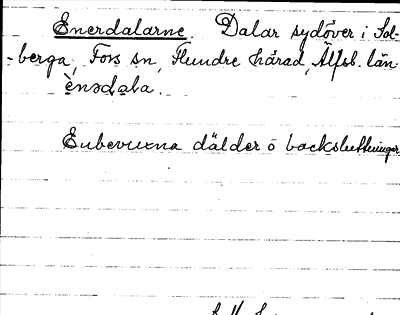 Enerdalarne. Dalar sydöver i Sol-
-berga, Fors sn, Flundre härad, Älfsb. län.
ènədąla.
Enbevuxna dälder o backsluttningar